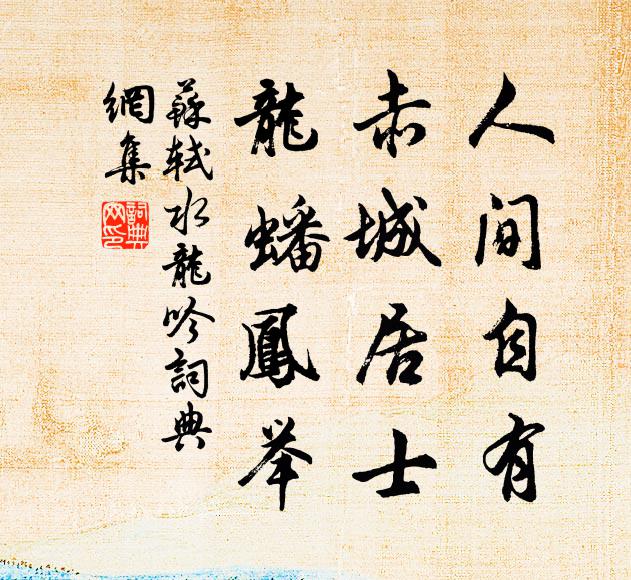 人間自有
赤城居士
龍蟠鳳举
蘇軾水龍吟詞典
網集
詞典
网印